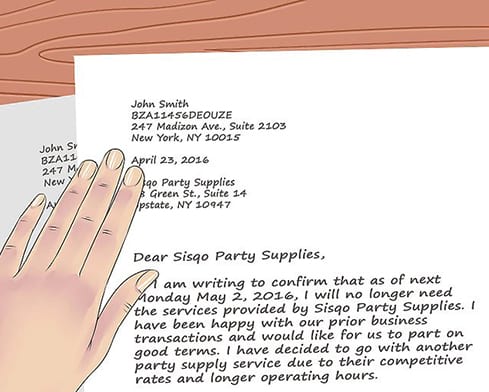 John Smith
BZA11456DEOUZE
247 Madizon Ave., Suite 2103
New York, NY 10015
April 23, 2016
Party Supplies
Green St., Suite 14
NY 10947
Dear Sisqo Party Supplies,
I am writing to confirm that as of next
Monday May 2, 2016, I will no longer need
the services provided by Sisqo Party Supplies. I
have been happy with our prior business
transactions and would like for us to part on
good terms. I have decided to go with another
party supply service due to their competitive
rates and longer operating hours.
John S
BZA11
247 M
New